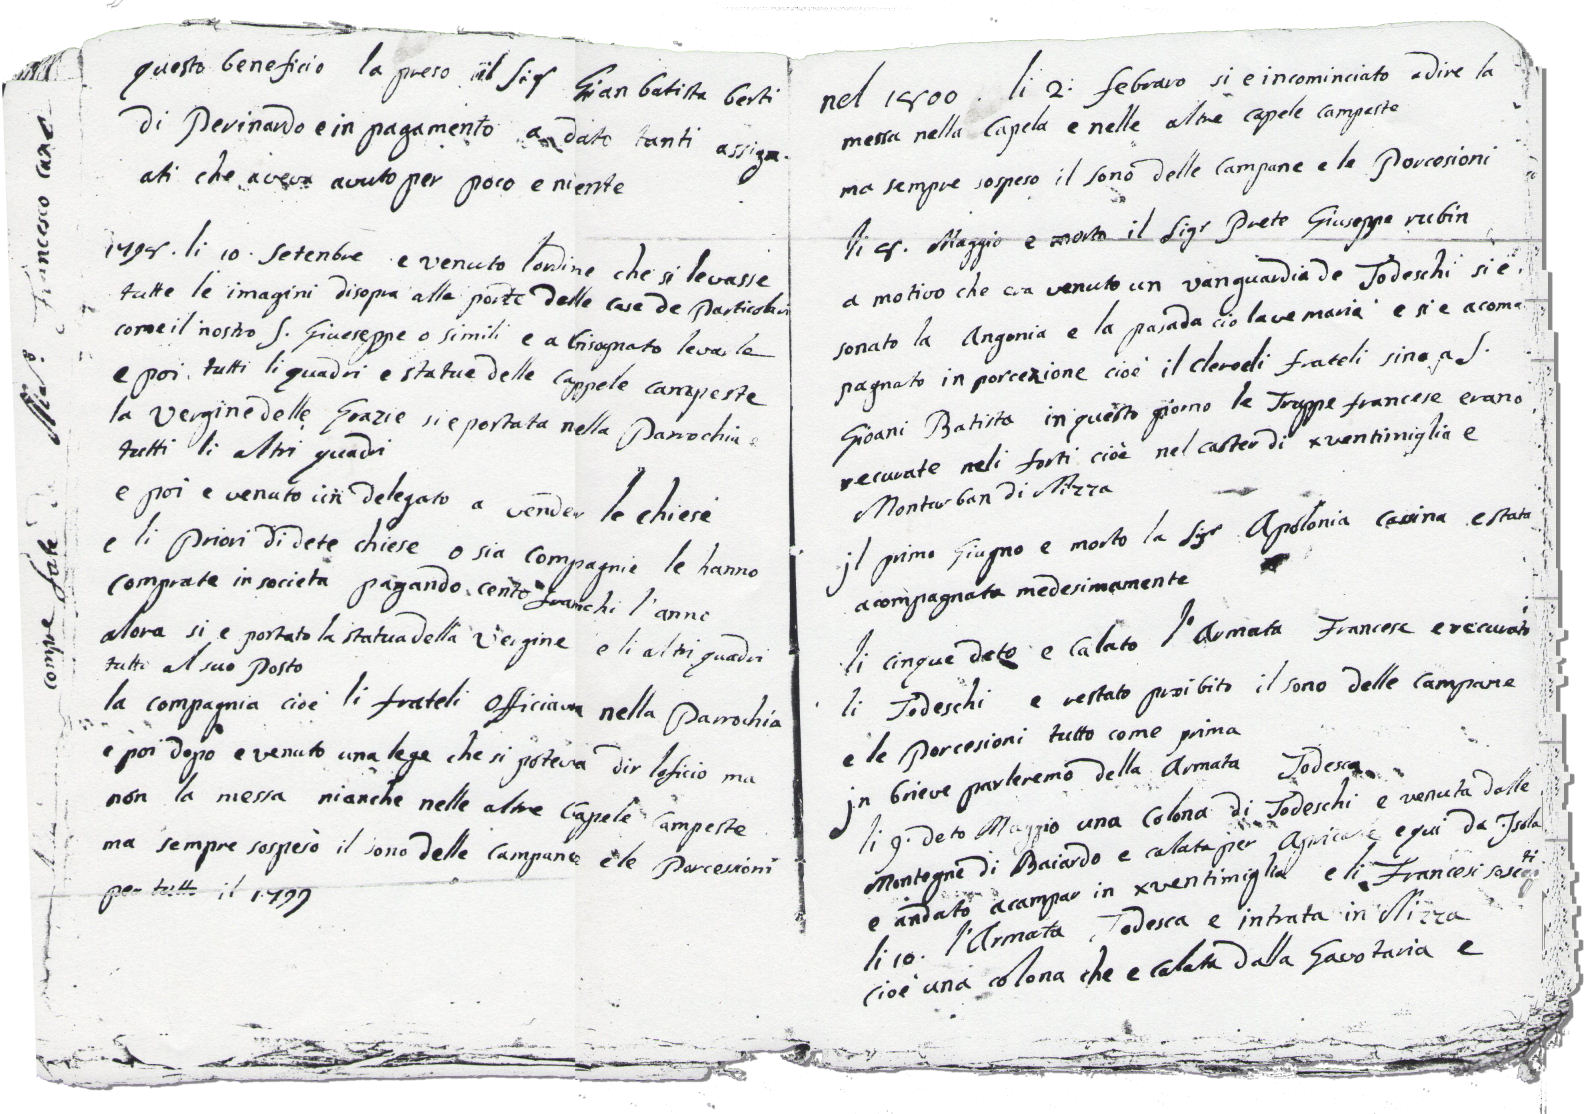 questo beneficio la preso il Sigr Gian batista berti
di Perinardo e in pagamento a dato tanti assign-
ati che aveva avuto per poco e niente
1798. li 10. Setenbre e venuto l'ordine che si levasse
tutte le imagini disopra alle porte delle case de Particolari
come il nostro S. Giuseppe o simili e a bisognato levarle
e poi tutti li quadri e statue delle cappele campeste
la Vergine delle Grazie si e portata nella Parrochia e
tutti li altri quadri
e poi e venuto un delegato a vender le chiese
e li Priori di dete chiese o sia compagnie le hanno
comprate in societa pagando cento franchi l'anno
alora si e portato la statua della Vergine e li altri quadri
tutti al suo posto
la compagnia cioe li frateli officiava nella Parrochia
e poi dopo e venuto una lege che si poteva dir loficio ma
non la messa nianche nelle altre Capele Campeste
ma sempre sospeso il sono delle Campane e le Porcessioni
per tutto il 1799
compre fate Francesco Cane
nel 1800. li 2. febraro si e incominciato adire la
messa nella Capela e nelle altre capele campeste
ma sempre sospeso il sono delle Campane e le Porcesioni
li 8. Maggio e morto il Sigr Prete Giuseppe rubin
a motivo che era venuto un vanguardia de Todeschi si e
sonato la Angonia e la pasada cio lave maria e si e acom-
pagnato in porcezione cioè il clero e li frateli sino a S.
Gioani Batista in questo giorno le Truppe francese erano
recurate neli forti cioè nel castel di xventimiglia e
Montarban di Nizza
jl primo Giugno e morto la Sigr Apolonia Cassina e stata
acompagnata medesimamente
li cinque deto e Calato l'Armata Francese e recurato
li Todeschi e restato proibito il sono delle Campane
e le Porcesioni tutto come prima
jn brieve parleremo della Armata Todesca
li 9. deto Maggio una Colona di Todeschi e venuta dalle
Montegne di Baiardo e calata per Apricale e qui da Isola
e andato acampar in xventimiglia e li Francesi
li 10. l'Armata Todesca e intrata in Nizza
cioe una colona che e Calata dalla Gavotaria e